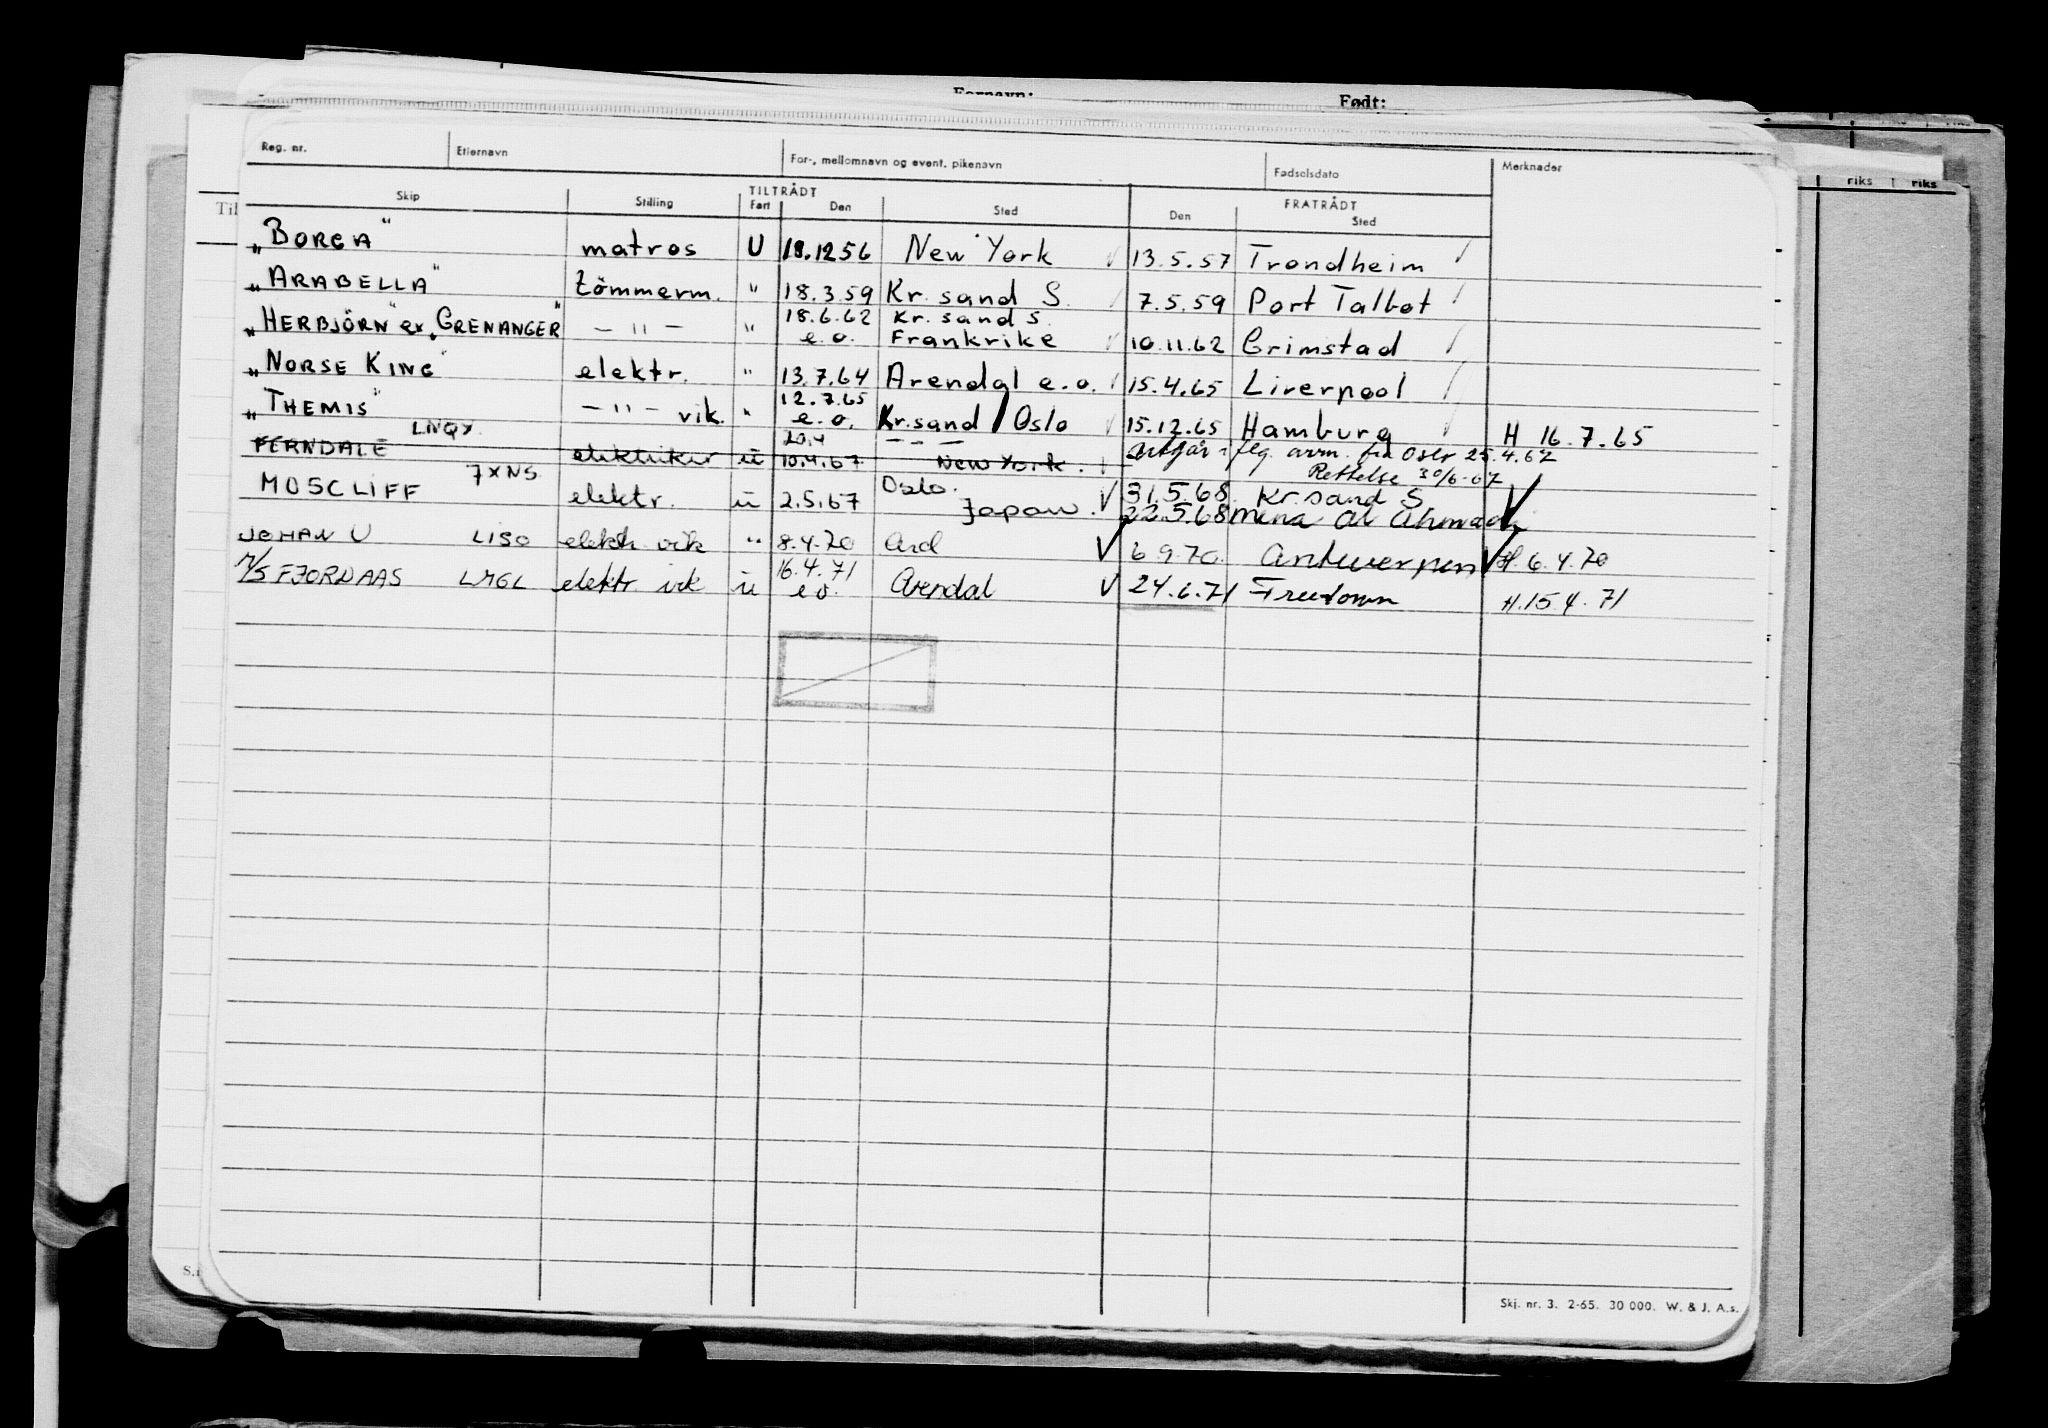 Fornavn: Født:
riks riks
Reg. nr. Etternavn For-, mellomnavn og event. pikenavn Fødselsdato Merknader
TILTRÅDT FRATRÅDT
Skip Stilling Fart Den Sted Den Sted
Til
„BORGA" matros U 18.12 56 New York ✓ 13.5.57 Trondheim ✓
„ARABELLA" tömmerm. " 18.3.59 Kr. sand S. ✓ 7.5.59 Port Talbot ✓
18.6.62 Kr. sand S.
„HERBJÖRN" ex „GRENANGER" — " — " e.o. Frankrike ✓ 10.11.62 Grimstad ✓
„NORSE KING" elektr. " 13.7.64 Arendal e.o. ✓ 15.4.65 Liverpool ✓
12.7.65
„THEMIS" — " — vik. " e.o. Kr.sand / Oslo ✓ 15.12.65 Hamburg ✓ H 16.7.65
LNQY 20.4 — — —
FERNDALE elektriker ü 10.4.67 New York. ✓ utgår i flg. avm. fra Oslo 25.4.67
Rettelse 30/6-67
MOSCLIFF 7XNS elektr. ü 2.5.67 Oslo. Japan. ✓ 31.5.68 Kr. sand S ✓
22.5.68 Mina al Ahmadi
JOHAN U LISO elektr. vik " 8.4.70 Ard ✓ 6 9.70. Antwerpen ✓ H. 6.4.70
16.4.71
M/S FJORDAAS LMGL elektr. vik ü e o. Arendal ✓ 24.6.71 Freetown H.15.4.71
Skj. nr. 3. 2-65. 30 000. W. & J. A.s.